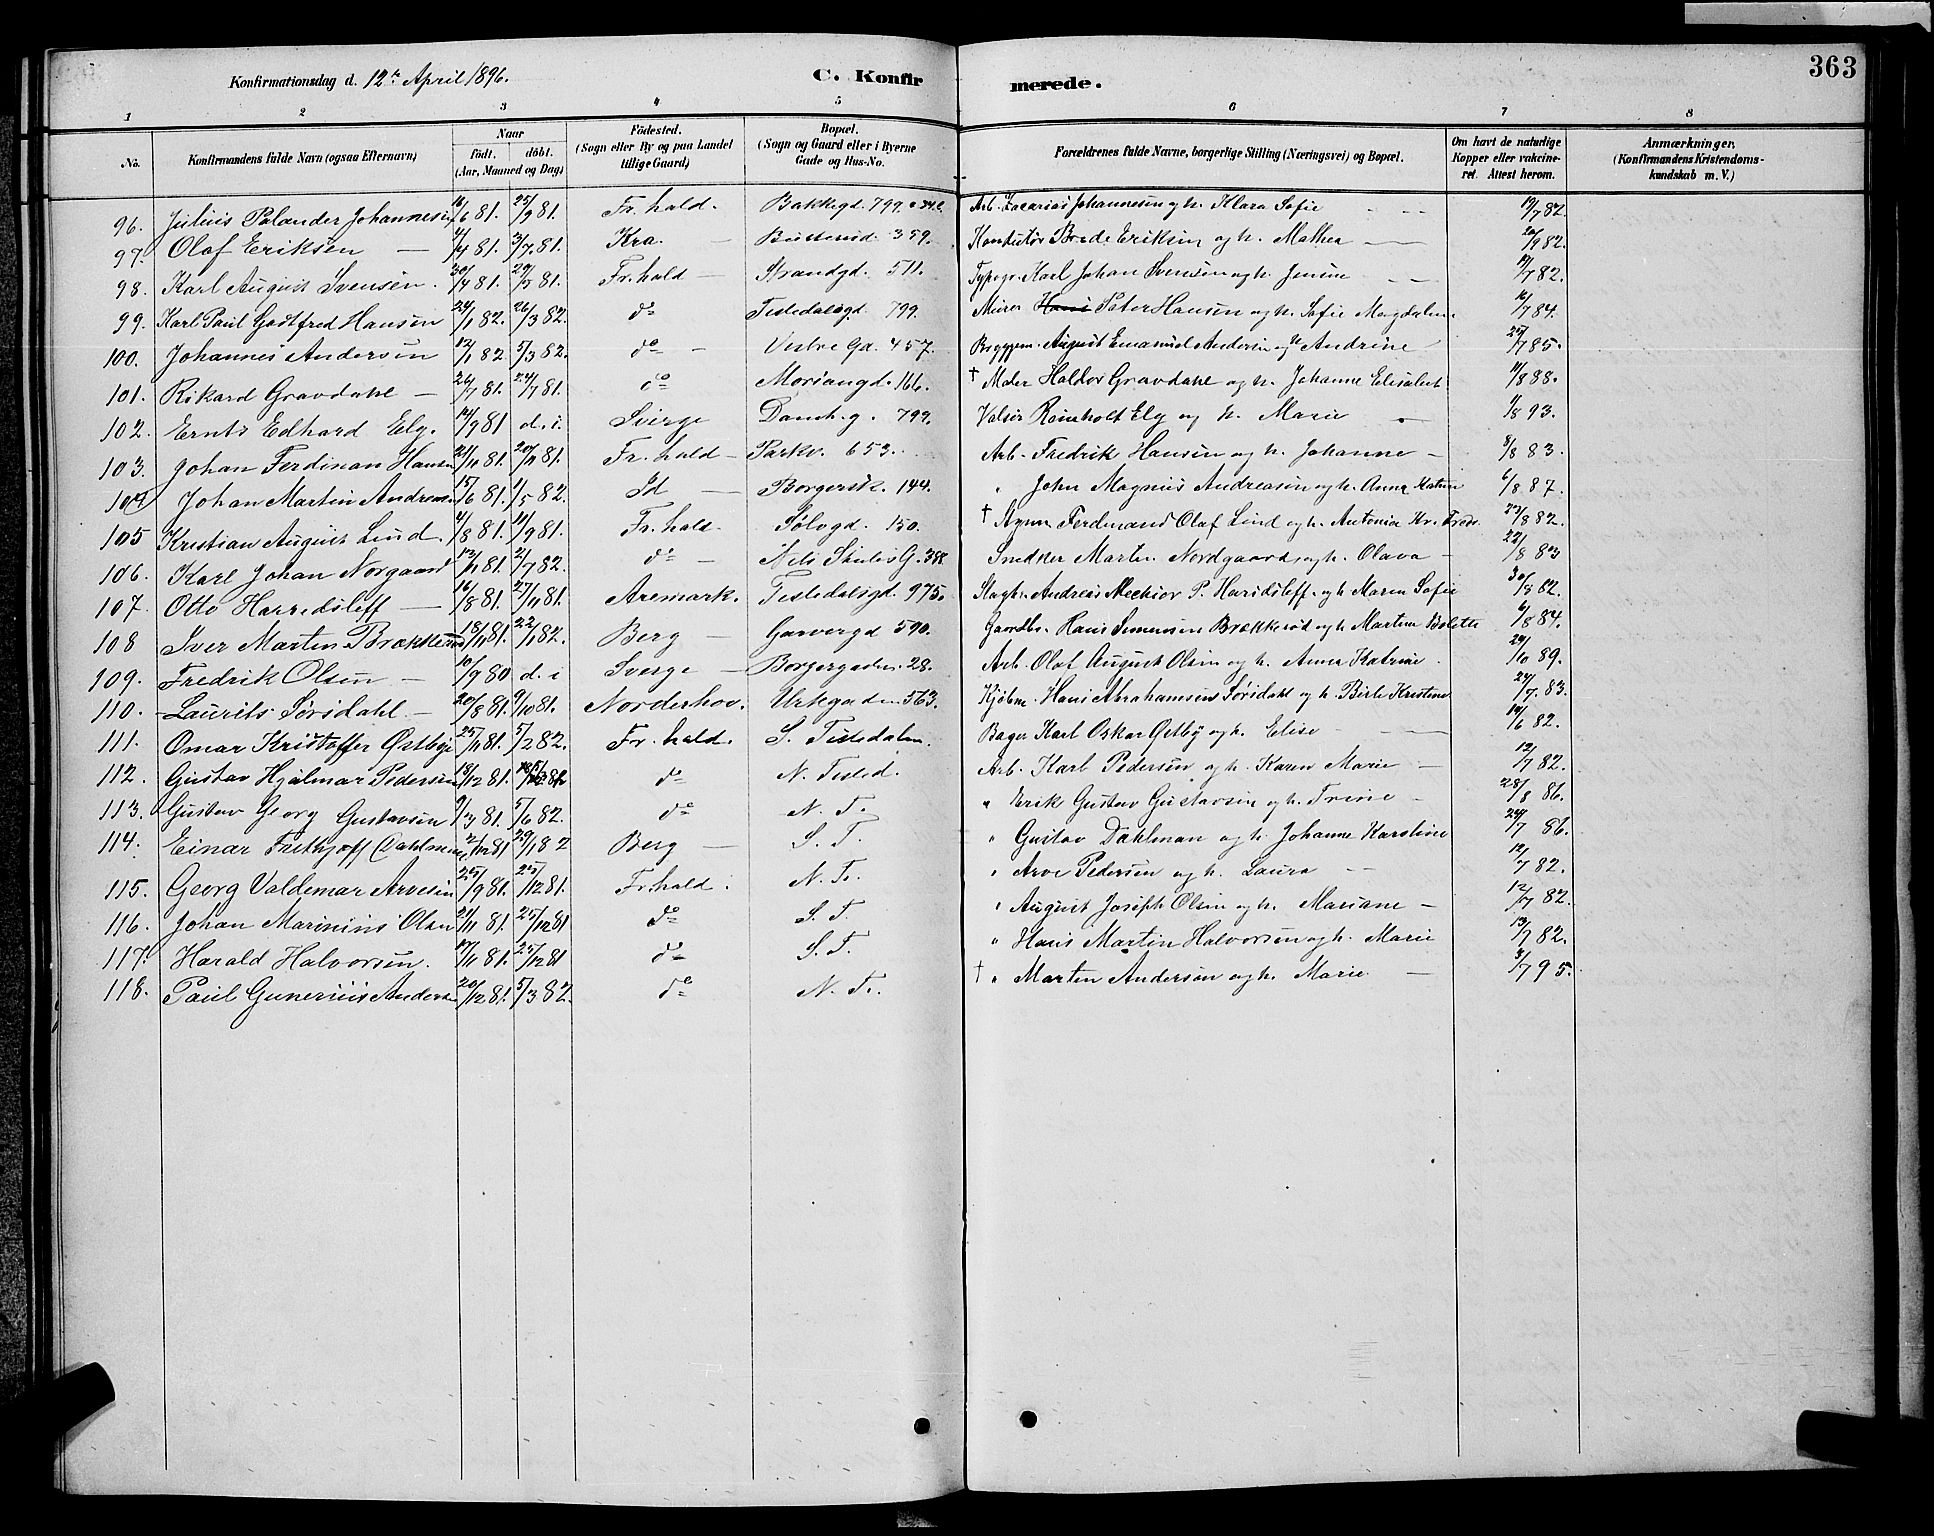 363
Konfirmationsdag d. 12te April 1896.
C. Konfirmerede.
1 2 3 4 5 6 7 8
No. Konfirmandens fulde Navn (ogsaa Efternavn) Naar födt. döbt. (Aar, Maaned og Dag) Födested. (Sogn eller By og paa Landet tillige Gaard) Bopæl. (Sogn og Gaard eller i Byerne Gade og Hus-No. Forældrenes fulde Navne, borgerlige Stilling (Næringsvei) og Bopæl. Om havt de naturlige Kopper eller vakcineret. Attest herom. Anmærkninger, (Konfirmandens Kristendomskundskab m. V.)
96. Julius Palander Johannesen 16/6 81. 25/9 81. Fr.hald. Bakkegd. 799. Arb. Zacarias Johannesen og h. Klara Sofie 19/7 82.
97. Olaf Eriksen 4/4 81. 3/7 81. Kra. 359. Konduktör Brede Eriksen og h. Mathea 20/9 82.
98. Karl August Svensen. 20/4 81. 29/5 81. Fr.hald Strandgd. 511. Typogr. Karl Johan Svensen og h. Jensine 12/7 82.
99. Karl Paul Godtfred Hansen 24/1 82. 26/3 82. do Tistedalsgd. 799. Murer Hans Peter Hansen og h. Sofie Magdalene 16/7 84.
100. Johannes Andersen 12/1 82. 5/3 82. do Vestre Ga. 457. August Emanuel Andersen og h. Andrine 25/7 85.
101. Rikard Gravdahl 26/7 81. 24/7 81. do Moriangd. 166. † Maler Haldor Gravdahl og h. Johanne Elisabet 11/8 88.
102. Ernts Edhard Elg. 14/9 81 d. i. Sverge Damh.g. 799. Valser Reinholt Elg og h. Marie 1/8 93.
103. Johan Ferdinan Hansen 21/10 81. 20/11 81. Fr.hald Parkv. 653. Arb. Fredrik Hansen og h. Johanne 8/8 83.
104 Johan Martin Andreasen 15/6 81. 1/5 82. Id Borgersk. 144. " John Magnus Andreasen og h. Anna Katrin 6/8 87.
105 Kristian August Lind. 4/8 81. 11/9 81. Fr.hald. Sölvgd. 150. † Ferdinand Olaf Lind og h. Antonia Kr. 23/8 82.
106. Karl Johan Norgaard 12/11 81. 2/7 82. do Nils Skules G. 388. Snedker Martin Nordgaard og h. Olava 22/8 83
107. Otto Harridsleff 16/8 81. 27/11 81. Aremark. Tistedalsgd. 975. Slagter Andreas Mechior P. Haridsleff og h. Maren Sofie 30/8 82.
108 Iver Marten Brækkerød 18/11 81. 22/1 82. Berg Garvergd 590. Gaardbr. Hans Simensen Brækkerød og h. Martine Bolette 6/8 84.
109. Fredrik Olsen 10/9 80 d. i Sverge Borgergaden. 28. Arb. Olaf August Olsen og h. Anna Katrine. 24/10 89.
110. Laurits Sörsdahl. 20/8 81. 9/10 81. Norderhov. Urkegaden 563. Kjöbm. Hans Abrahamsen Sörsdahl og h. Birte Kristine 24/7. 83.
111. Omar Kristoffer Østbye 25/11 81. 5/2 82. Fr.hald. S. Tistedalen. Bager Karl Oskar Østby og h. Elise 19/6 82.
112. Gustav Hjalmar Pedersen 13/12 81. do N. Tisted. Arb. Karl Pedersen og h. Karen Marie 12/7 82.
113. Gustav Georg Gustavsen 9/3 81. 5/6 82. do N. T. " Erik Gustav Gustavsen og h. Trine 28/8 86.
114. Einar Frithjoff Dahlman 2/12 81 29/1 82 Berg S. T. " Gustav Dahlman og h. Johanne Karstine 24/7 86.
115. Georg Valdemar Arvesen 25/9 81. 25/12 81. Fr.hald. N. T. " Arve Pedersen og h. Laura 12/7 82.
116. Johan Marinius Olsen 21/11 81. 25/12 81 do S. T. " August Joseph Olsen og h. Mariane 12/7 82.
117. Harald Halvorsen. 17/11 81. 25/12 81 do S. T. " Hans Martin Halvorsen og h. Marie 13/7 82.
118. Paul Gunerius Andersen 20/12 81. 5/3 82. do N. T. † " Marten Andersen og h. Marie 3/7 95.